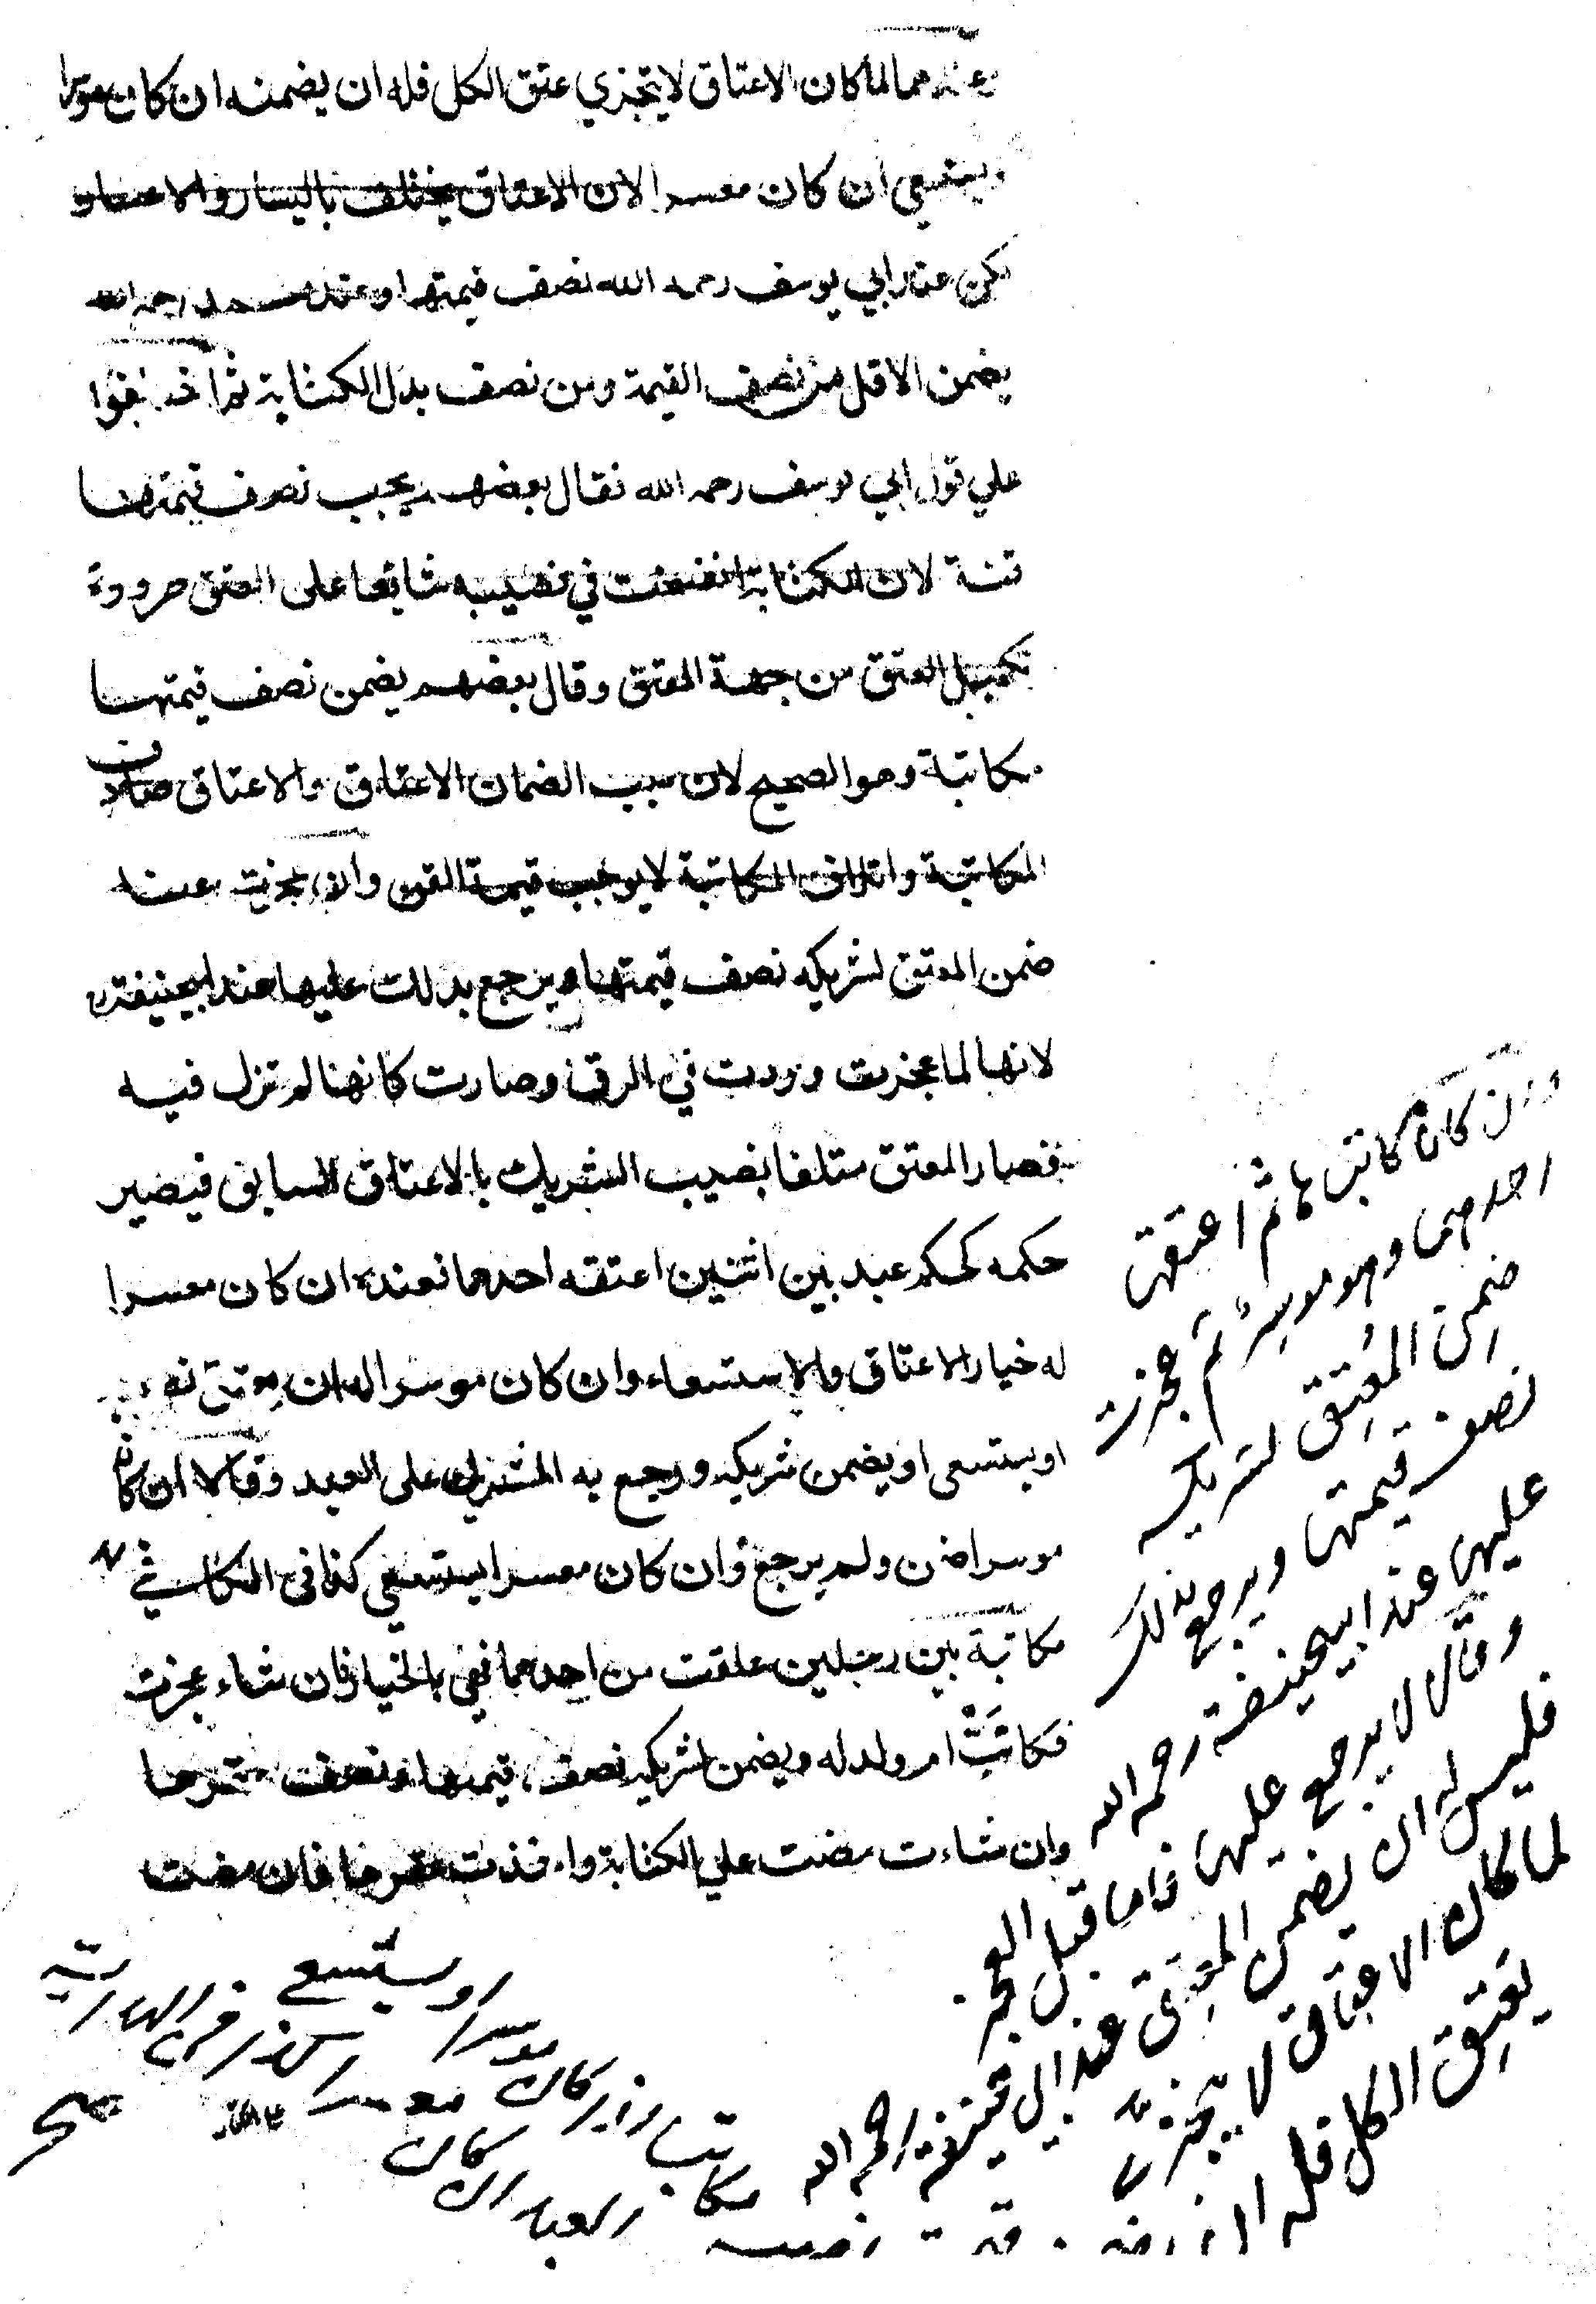 وعندهما لما كان الاعتاق لا يتجزي عتق الكل فله ان يضمنه ان كان موسرا
ويستسعي ان كان معسرا لان الاعتاق يختلف باليسار والاعسار
لكن عند ابي يوسف رحمه الله نصف قيمتها وعند محمد رحمه الله
يضمن الاقل من نصف القيمة ومن نصف بدل الكتابة ثم اختلفوا
علي قول ابي يوسف رحمه الله فقال بعضهم يجب نصف قيمتها
قنة لان الكتابة انفسخت في نصيبه سابقا على العتق ضرورة
تكميل العتق من جهة المعتق وقال بعضهم يضمن نصف قيمتها
مكاتبة وهو الصحيح لان سبب الضمان الاعتاق والاعتاق صادف
المكاتبة واتلاف المكاتبة لا يوجب قيمة القن وان عجزت عنه
ضمن المعتق لشريكه نصف قيمتها ويرجع بذلك عليها عند ابيحنيفة
لانها لما عجزت وردت في الرق وصارت كانها لم تزل فيه
فصار المعتق متلفا نصيب الشريك بالاعتاق السابق فيصير
حكمه كحكم عبد بين اثنين اعتقه احدهما فعنده ان كان معسرا
له خيار الاعتاق والاستسعاء وان كان موسرا له ان يعتق نصيبه
او يستسعى او يضمن شريكه ورجع به المشتري على العبد وقالا ان كان
موسرا ضمن ولم يرجع وان كان معسرا يستسعي كذا في الكافي
مكاتبة بين رجلين علقت من احدهما فهي بالخيار فان شاء عجزت
فكانت ام ولد له ويضمن لشريكه نصف قيمتها ونصف عقرها
وان شاءت مضت علي الكتابة واخذت عقرها فان مضت
وان كان كاتبها ثم اعتقها
احدهما وهو موسر ثم عجزت
ضمن المعتق لشريكه
نصف قيمتها ويرجع بذلك
عليها عند ابيحنيفة رحمه الله
وقالا لا يرجع عليها فاما قبل العجز
فليس له ان يضمن المعتق عند ابي حنيفة رحمه الله
لما كان الاعتاق لا يتجزى
يعتق الكل فله ان
مكاتبا ان كان موسرا ويستسعى
العبد ان كان معسرا كذا في الهداية
صح